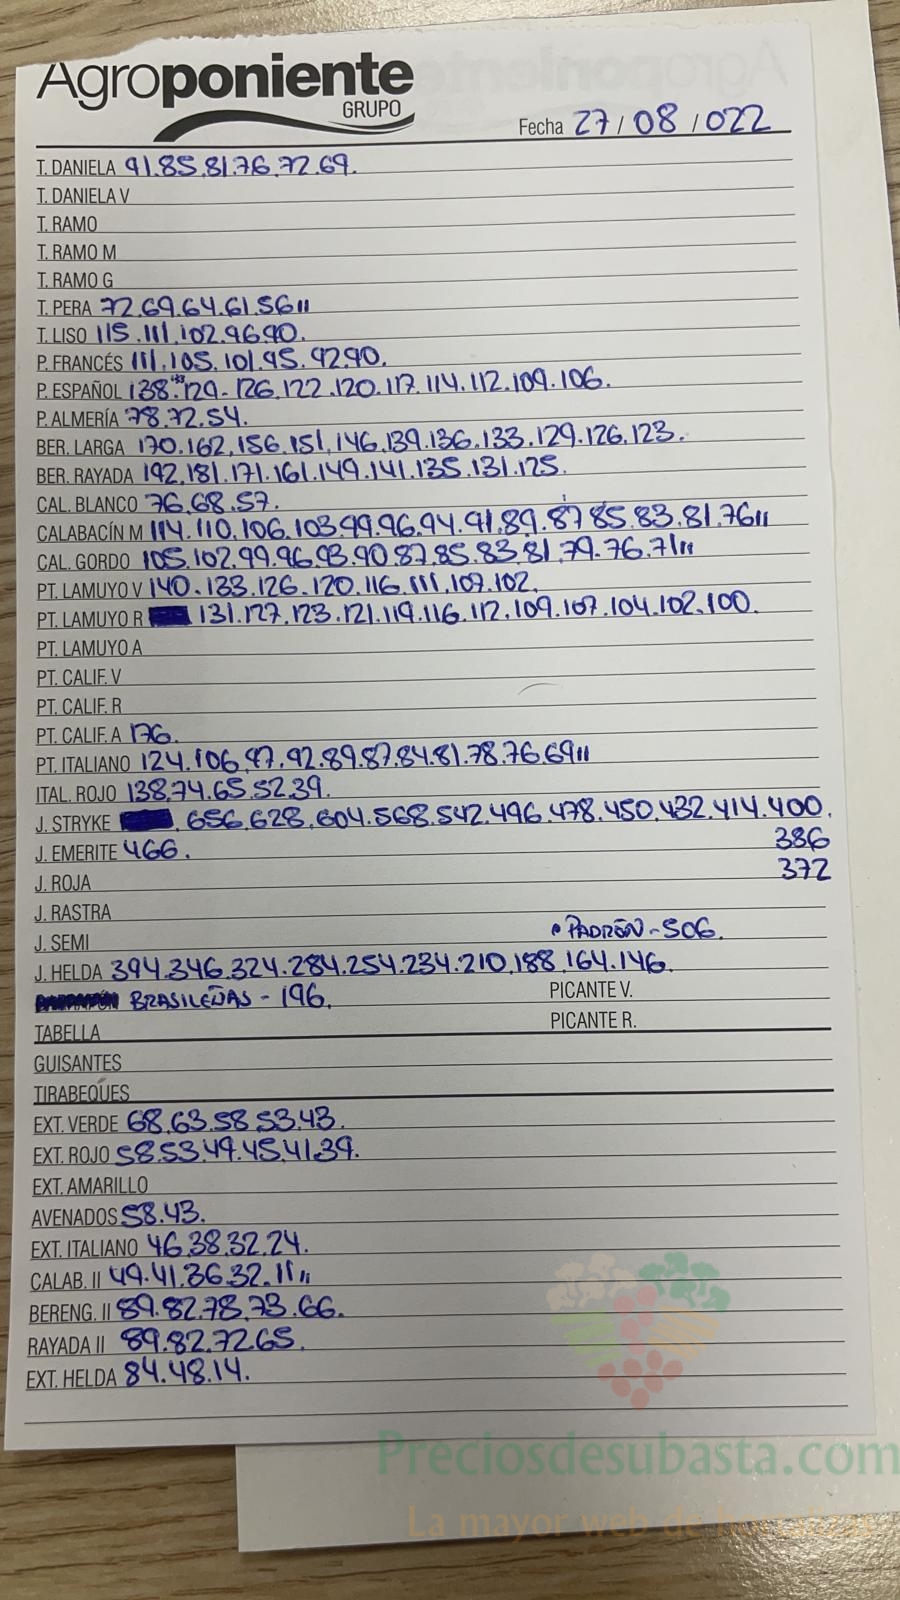 Agroponiente
GRUPO
Fecha 27/08/022
T. DANIELA 91.85.81.76.72.69.
T. DANIELA V
T. RAMO
T. RAMO M
T. RAMO G
T. PERA 72.69.64.61.56 11
T. LISO 115.111.102.96.90.
P. FRANCÉS 111.105.101.95.92.90.
P. ESPAÑOL 138.129.126.122.120.117.114.112.109.106.
P. ALMERÍA 78.72.54.
BER. LARGA 170.162.156.151.146.139.136.133.129.126.123.
BER. RAYADA 192.181.171.161.149.141.135.131.125.
CAL. BLANCO 76.68.57.
CALABACÍN M 114.110.106.103.99.96.94.91.89.87.85.83.81.76 11
CAL. GORDO 105.102.99.96.93.90.87.85.83.81.79.76.71 11
PT. LAMUYO V 140.133.126.120.116.111.107.102.
PT. LAMUYO R 131.127.123.121.119.116.112.109.107.104.102.100.
PT. LAMUYO A
PT. CALIF. V
PT. CALIF. R
PT. CALIF. A 176.
PT. ITALIANO 124.106.97.92.89.87.84.81.78.76.69 11
ITAL. ROJO 138.74.65.52.39.
J. STRYKE 656.628.604.568.542.496.478.450.432.414.400.
J. EMERITE 466. 386
J. ROJA 372
J. RASTRA
J. SEMI • PADRÓN - 506.
J. HELDA 394.346.324.284.254.234.210.188.164.146.
BRASILEÑAS - 196. PICANTE V.
TABELLA PICANTE R.
GUISANTES
TIRABEQUES
EXT. VERDE 68.63.58.53.43.
EXT. ROJO 58.53.49.45.41.39.
EXT. AMARILLO
AVENADOS 58.43.
EXT. ITALIANO 46.38.32.24.
CALAB. II 49.41.36.32.11 11
BERENG. II 89.82.78.73.66.
RAYADA II 89.82.72.65.
EXT. HELDA 84.48.14.
Preciosdesubasta.com
La mayor web de